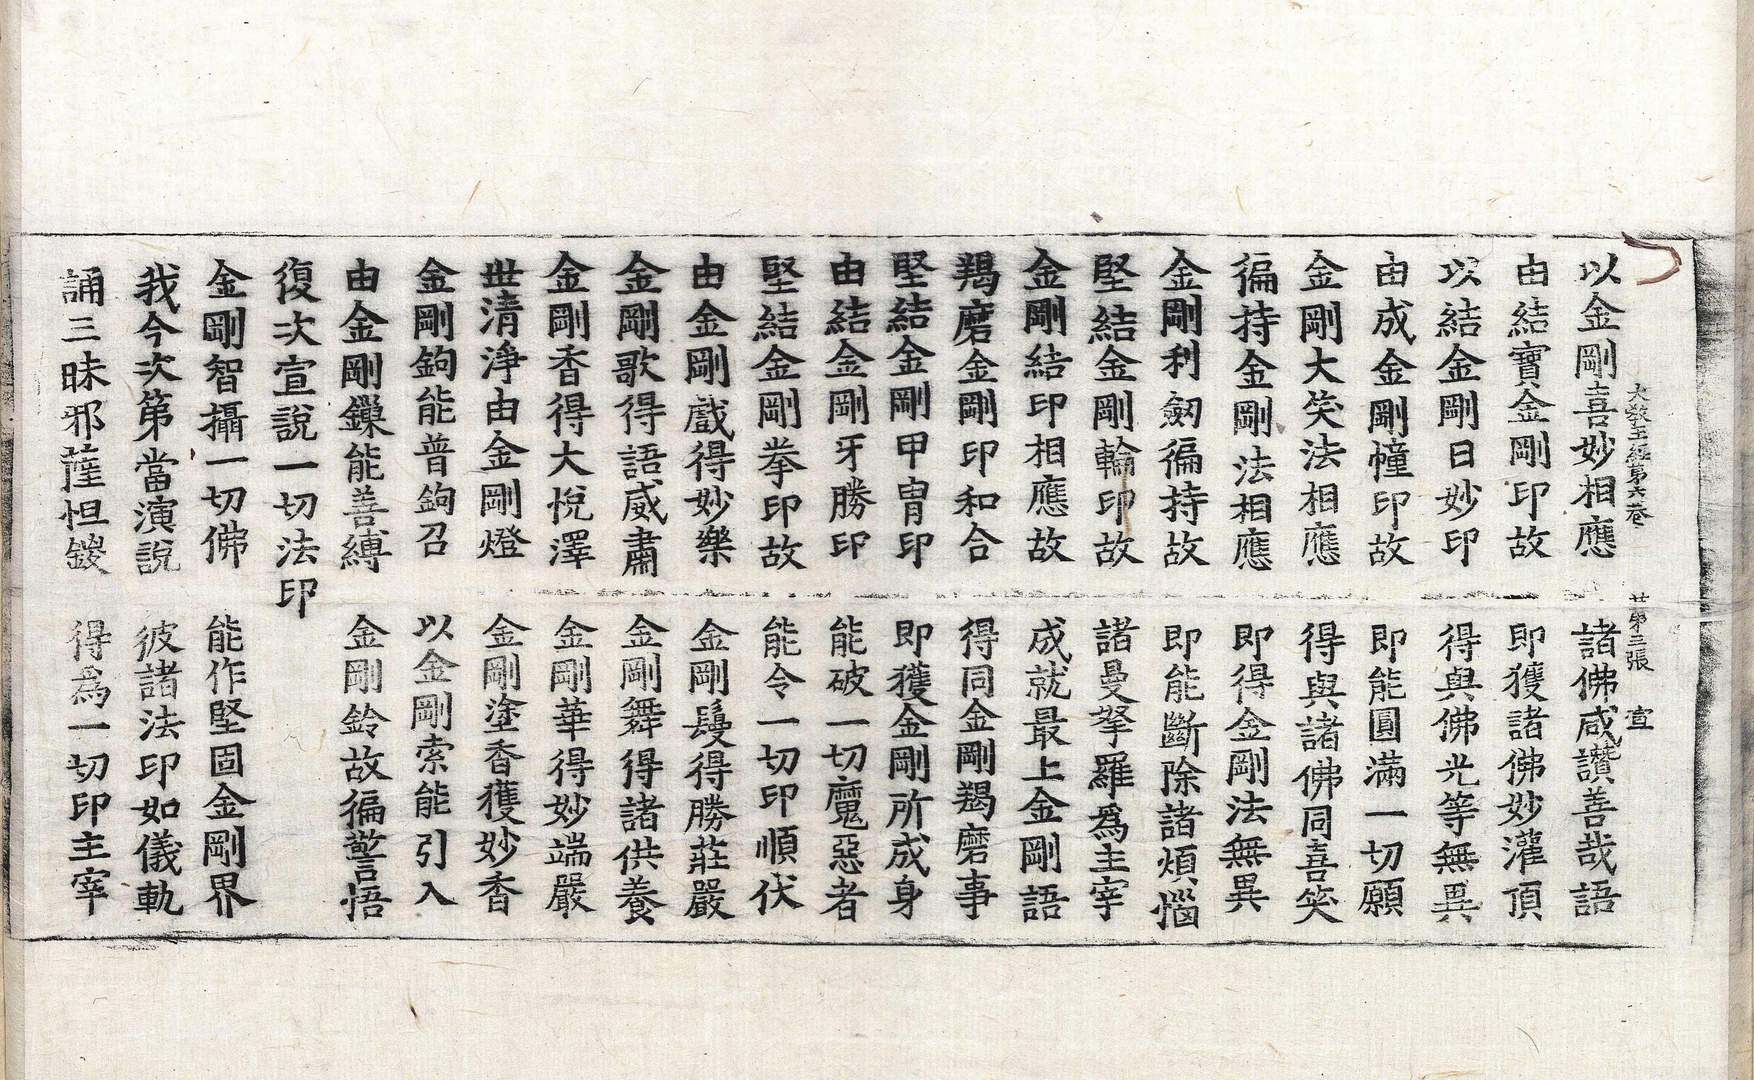 大教王經第六卷 第三張 宣
以金剛喜妙相應 諸佛咸讚善哉語
由結寶金剛印故 即獲諸佛妙灌頂
以結金剛日妙印 得與佛光等無異
由成金剛幢印故 即能圓滿一切願
金剛大笑法相應 得與諸佛同喜笑
徧持金剛法相應 即得金剛法無異
金剛利劒徧持故 即能斷除諸煩惱
堅結金剛輪印故 諸曼拏羅爲主宰
金剛結印相應故 成就最上金剛語
羯磨金剛印和合 得同金剛羯磨事
堅結金剛甲冑印 即獲金剛所成身
由結金剛牙勝印 能破一切魔惡者
堅結金剛拳印故 能令一切印順伏
由金剛戲得妙樂 金剛鬘得勝莊嚴
金剛歌得語威肅 金剛舞得諸供養
金剛香得大悅澤 金剛華得妙端嚴
世清淨由金剛燈 金剛塗香獲妙香
金剛鉤能普鉤召 以金剛索能引入
由金剛鏁能善縛 金剛鈴故徧警悟
復次宣說一切法印
金剛智攝一切佛 能作堅固金剛界
我今次第當演說 彼諸法印如儀軌
誦三昧邪薩怛鑁 得為一切印主宰